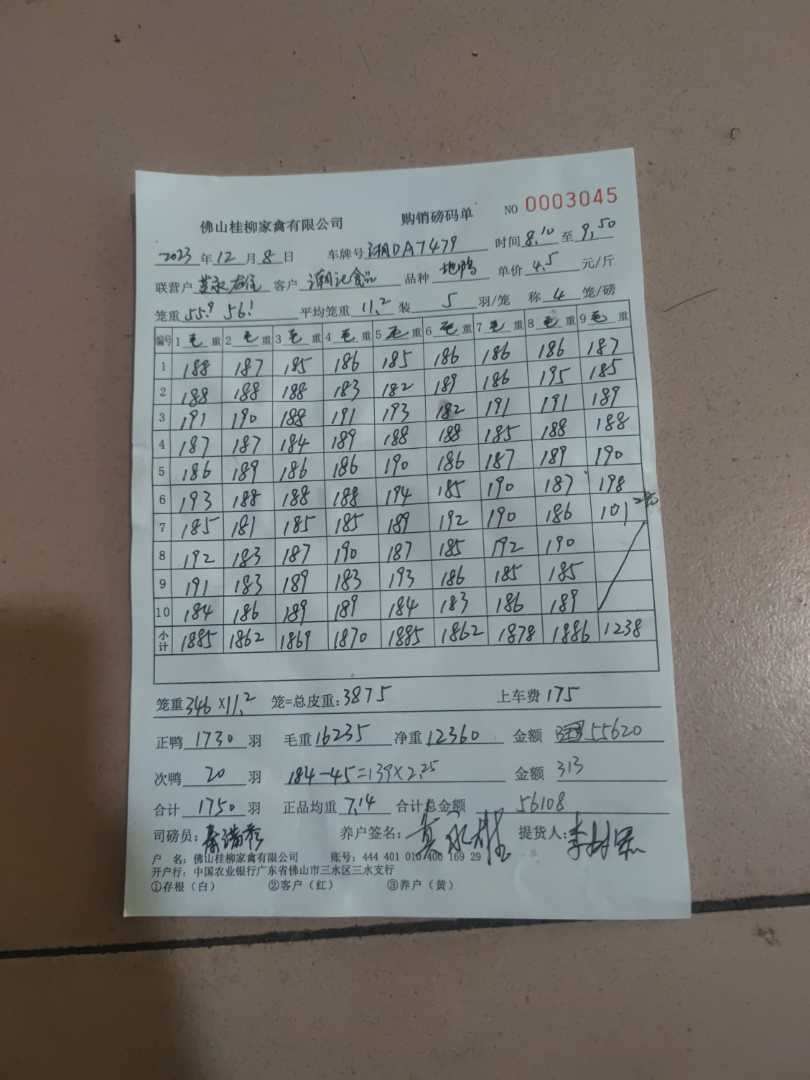 佛山桂柳家禽有限公司 购销磅码单 NO 0003045
2023 年 12 月 8 日 车牌号 湘DA7479 时间 8.10 至 9.50
联营户 客户 潮记食品 品种 地鸭 单价 4.5 元/斤
笼重 55.9 56.1 平均笼重 11.2 装 5 羽/笼 称 4 笼/磅
编号 1 毛 重 2 毛 重 3 毛 重 4 毛 重 5 毛 重 6 毛 重 7 毛 重 8 毛 重 9 毛 重
1 188 187 185 186 185 186 186 186 187
2 188 188 188 183 182 189 186 195 185
3 191 190 188 191 193 182 191 191 189
4 187 187 184 189 188 188 185 188 188
5 186 189 186 186 190 186 187 189 190
6 193 188 188 188 194 185 190 187 198
7 185 181 185 185 189 192 190 186 101
8 192 183 187 190 187 185 192 190
9 191 183 189 183 193 186 185 185
10 184 186 189 189 184 183 186 189
小计 1885 1862 1869 1870 1885 1862 1878 1886 1238
笼重 346 ×11.2 笼=总皮重: 3875 上车费 175
正鸭 1730 羽 毛重 16235 净重 12360 金额 55620
次鸭 20 羽 184-45=139×2.25 金额 313
合计 1750 羽 正品均重 7.14 合计总金额 56108
司磅员: 养户签名: 提货人:
户 名: 佛山桂柳家禽有限公司 账号: 444 401 010 400 169 29
开户行: 中国农业银行广东省佛山市三水区三水支行
①存根(白) ②客户(红) ③养户(黄)